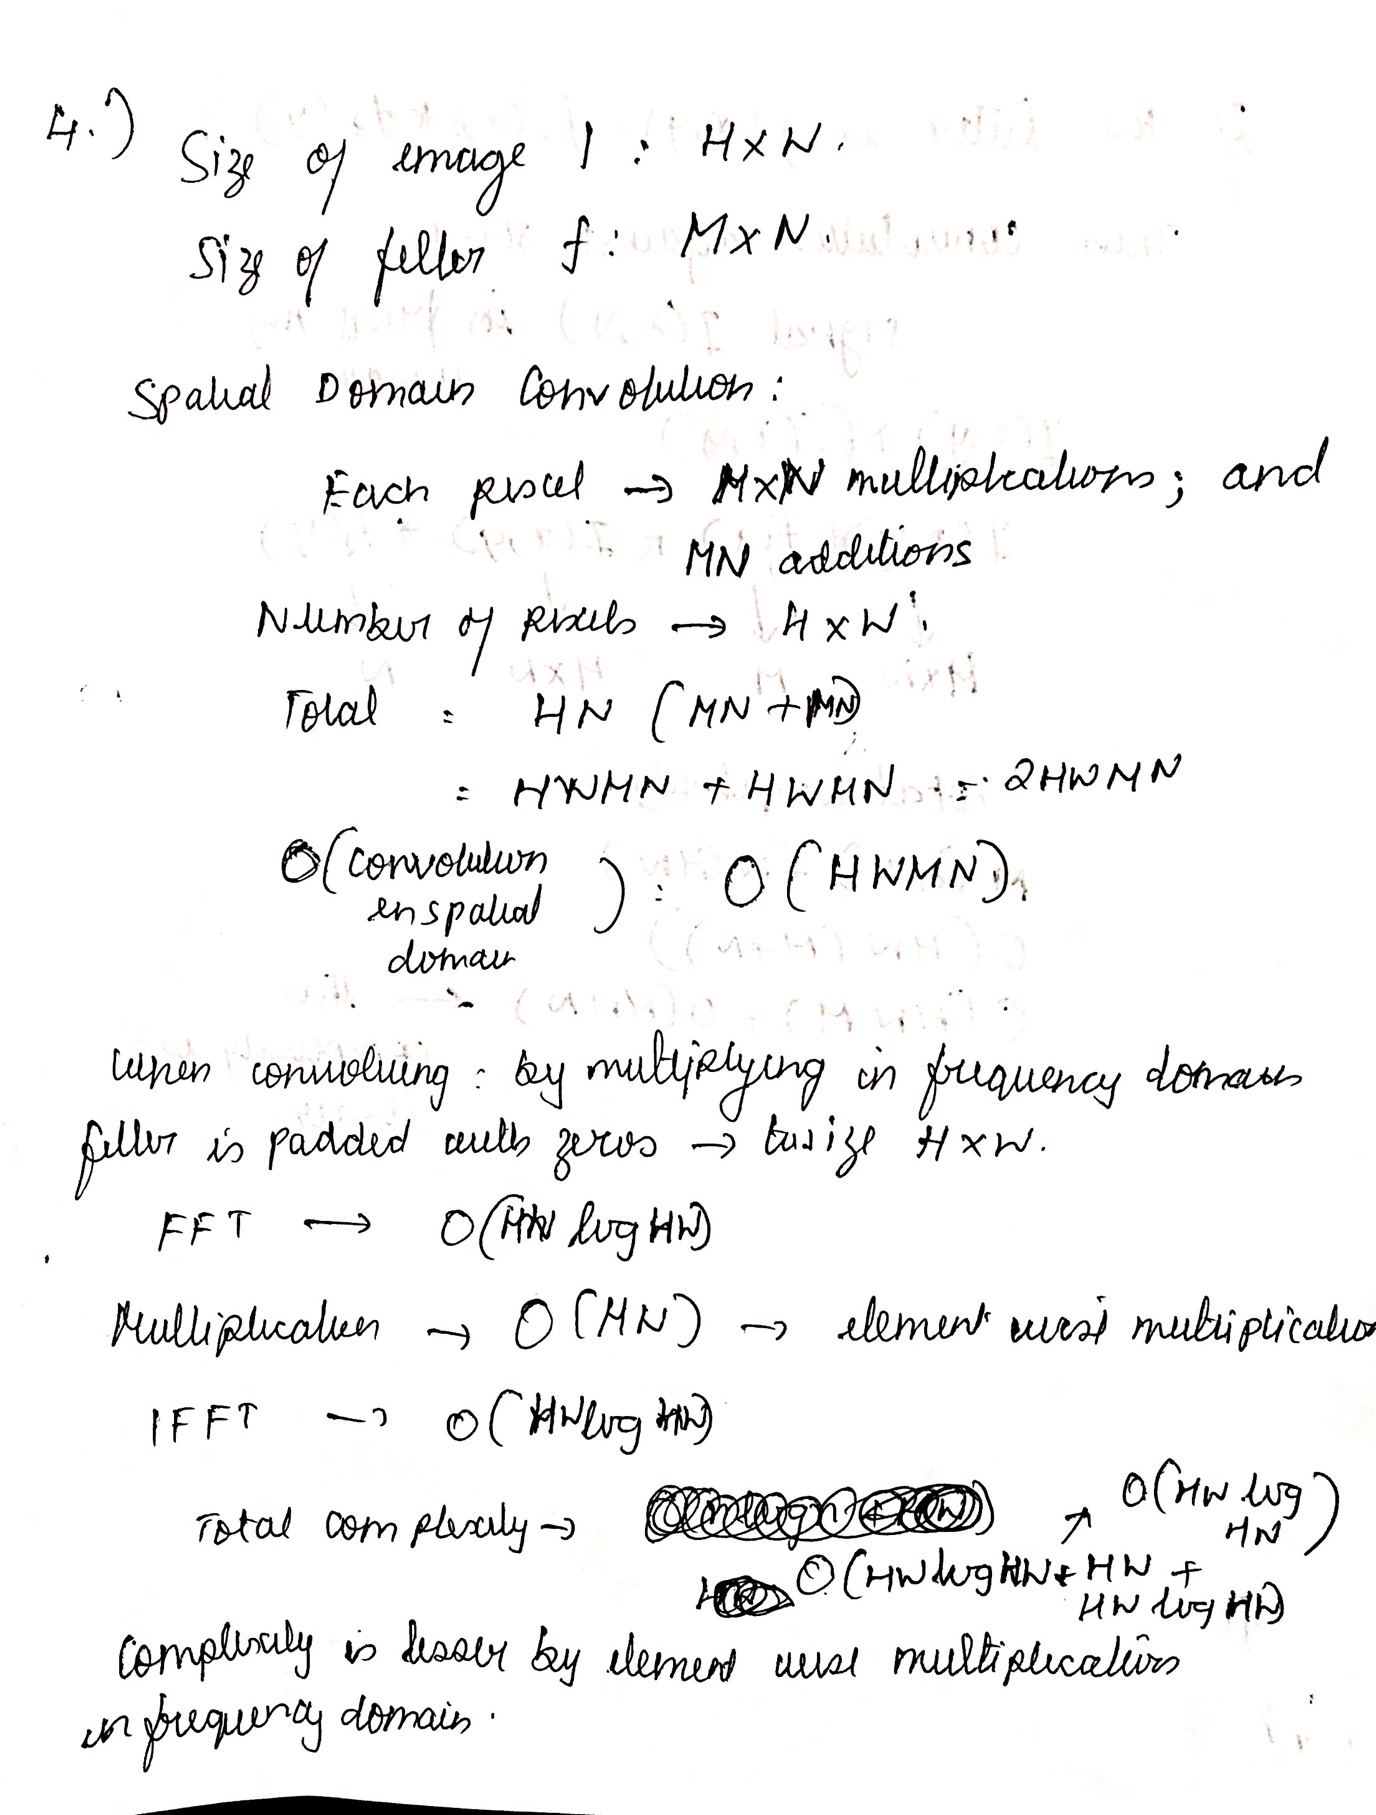 4.)
Size of image I : H×W.
Size of filter f : M×N.
Spatial Domain Convolution:
Each pixel → M×N multiplications; and
MN additions
Number of pixels → H×W.
Total = HW (MN + MN)
= HWMN + HWMN = 2HWMN
O(convolution
in spatial
domain) : O(HWMN).
When convolving : by multiplying in frequency domain
filter is padded with zeros → to size H×W.
FFT → O(HW log HW)
Multiplication → O(HW) → element wise multiplication
IFFT → O(HW log HW)
Total complexity → O(HW log HW + HW + HW log HW) ↗ O(HW log HW)
Complexity is lesser by element wise multiplication
in frequency domain.